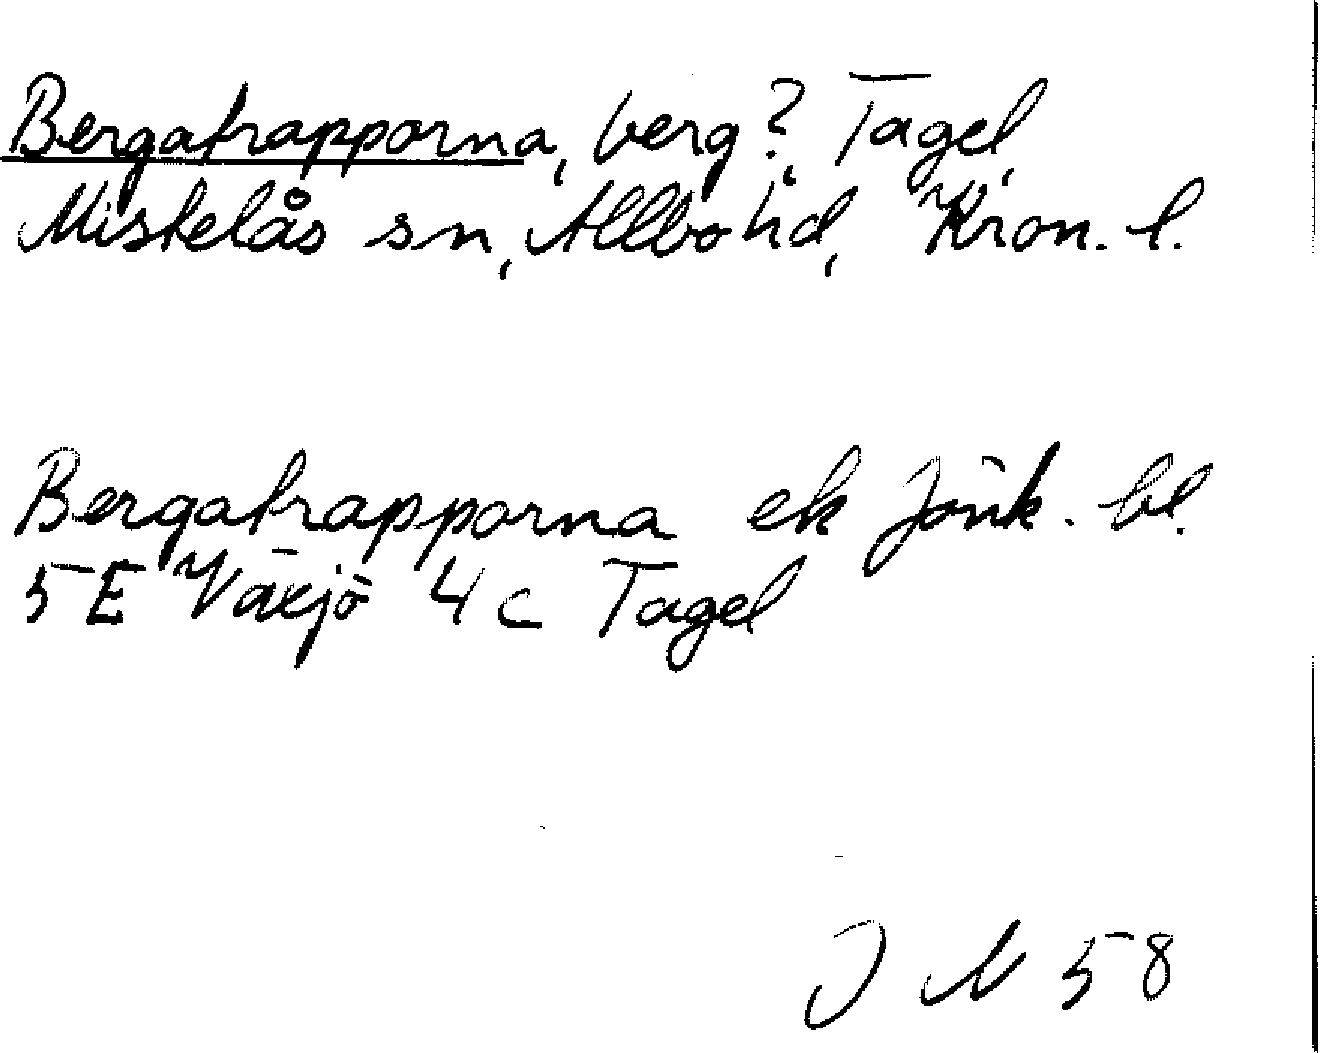 Bergatrapporna, berg?, Tagel,
Mistelås sn, Allbo hd, Kron. l.
Bergatrapporna ek Jönk. bl.
5 E Växjö 4 c Tagel
J N 58